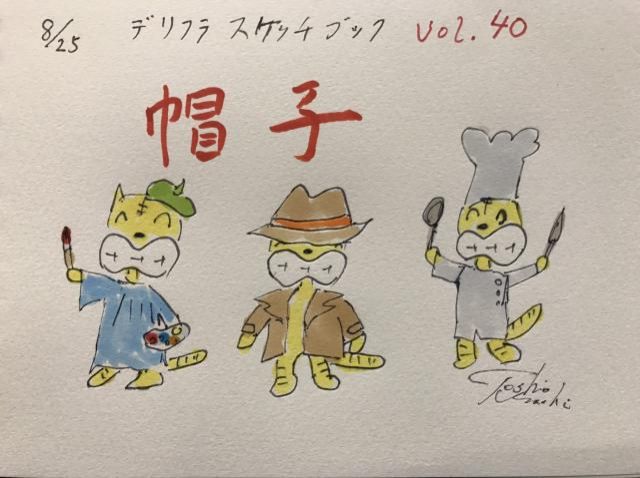 8/25 デリフラ スケッチブック Vol. 40
帽子
Toshio